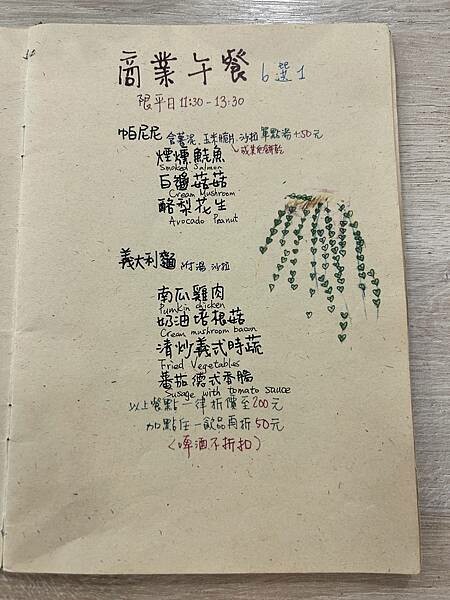 商業午餐 6選1
限平日 11:30-13:30
帕尼尼 含薯泥、玉米脆片、沙拉 單點湯+50元
煙燻鮭魚
Smoked Salmon
白醬菇菇
Cream Mushroom
酪梨花生
Avocado Peanut
義大利麵 附湯 沙拉
南瓜雞肉
Pumkin chicken
奶油培根菇
Cream mushroom bacon
清炒義式時蔬
Fried Vegetables
蕃茄德式香腸
Susage with tomato sauce
以上餐點一律折價至200元
加點任一飲品再折50元
(啤酒不折扣)